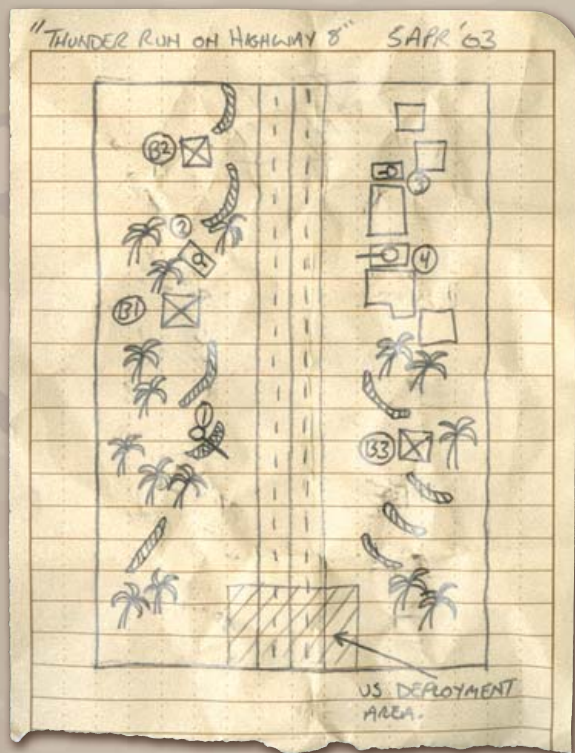 "THUNDER RUN ON HIGHWAY 8" 5APR '03
B2
3
2
4
B1
1
B3
US DEPLOYMENT
AREA.